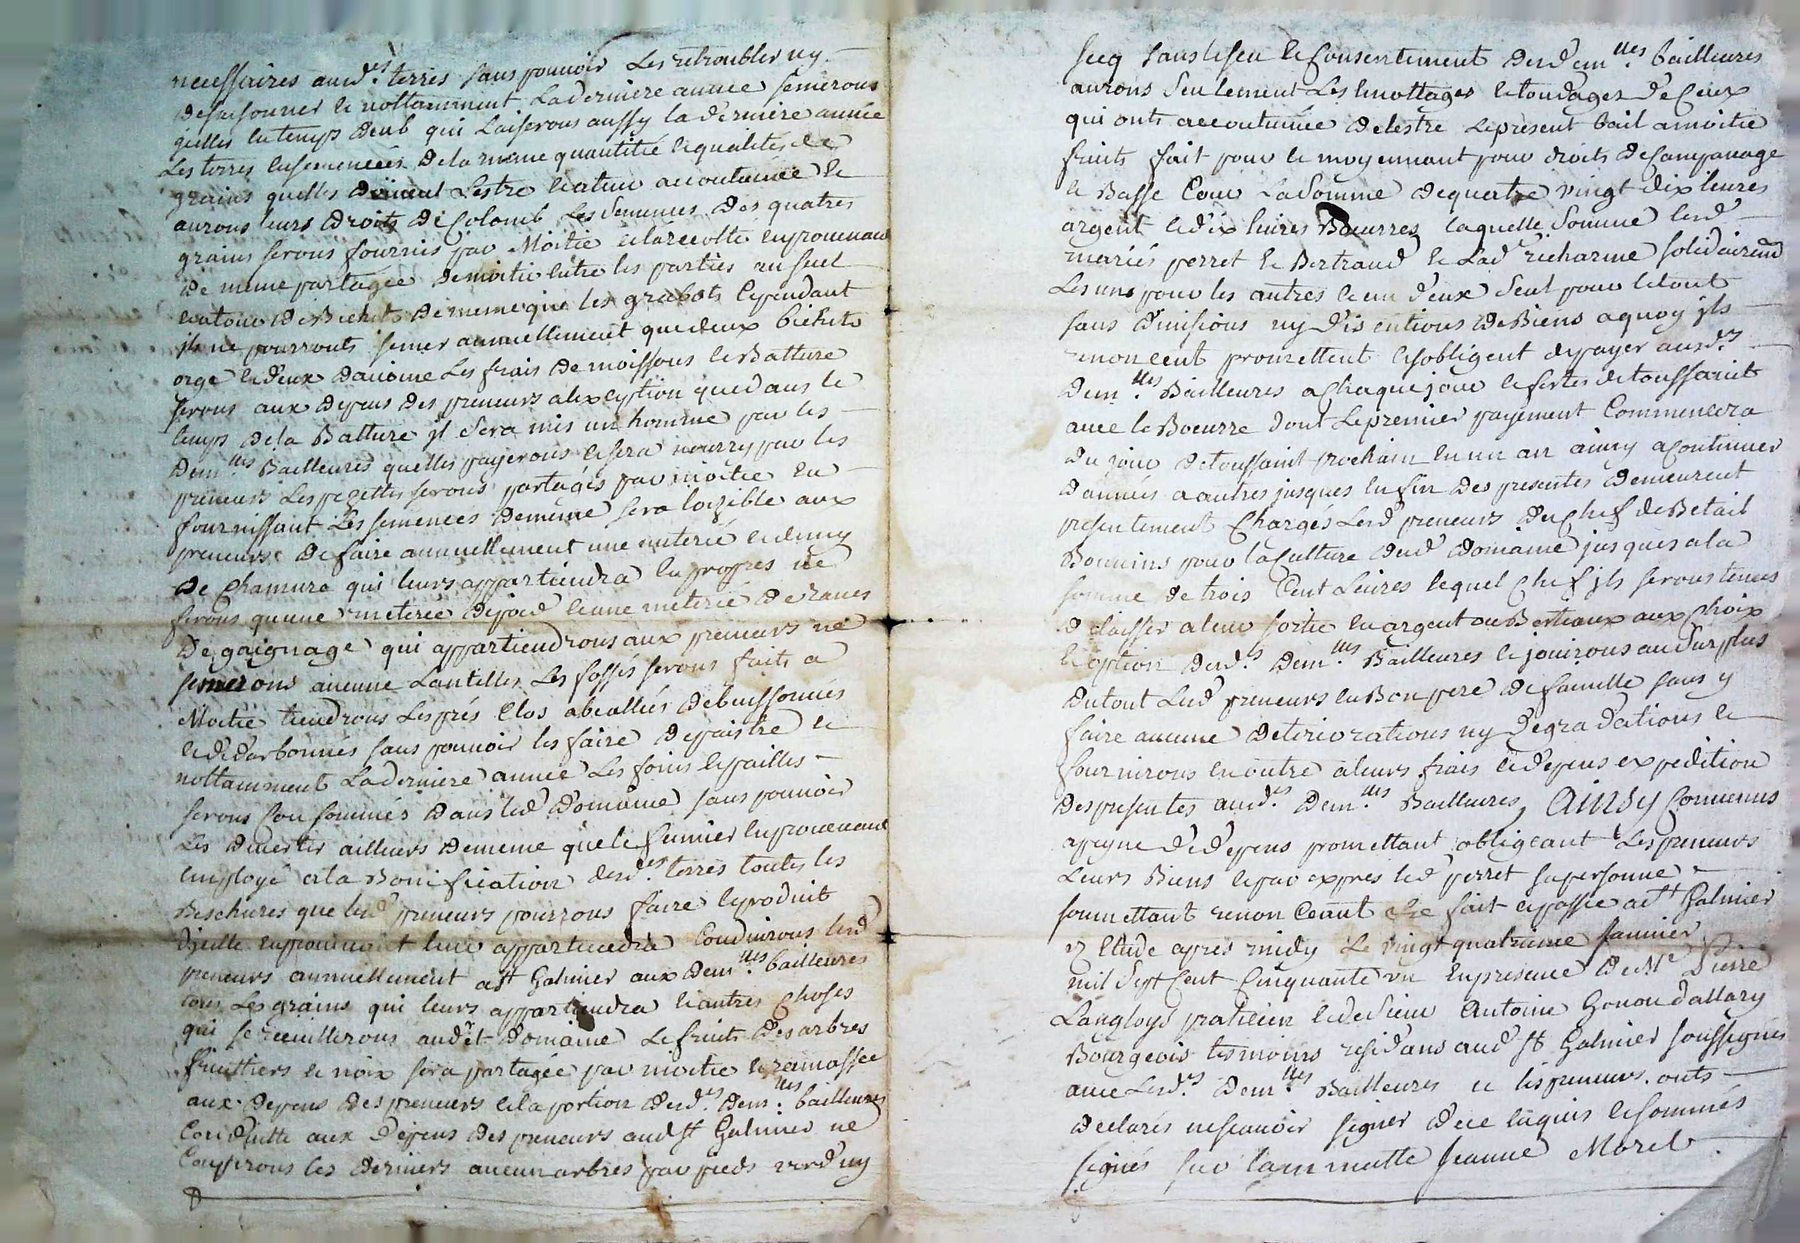 necessaires auxd.es terres sans pouvoir les retroubler ny
desaisonner et nottamment la derniere année semerons
jcelles en temps deub qui laisserons aussy la derniere année
les terres ensemencées de la meme quantitié et qualités de
grains quelles doivent lestre eu accoutumée et
aurons leurs droits de Colomb les semences des quatres
grains serons fournis par moitie et la recolte en provenant
de meme partagée de moitie entre les parties au suel
de Bichets de meme que les grabots cependant
jls ne pourronts semer annuellement que deux bichets
orge et deux davoine les frais de moissons et Batture
serons aux depens des preneurs a lexception que dans le
temps de la Batture jl sera mis un homme par les
dem.lles Bailleures quelles payerons et sera nourry par les
preneurs les serons partagés par moitie en
fournissant les semences de meme sera loizible aux
preneurs de faire annuellement une meterée et demy
de chamure qui leurs appartiendra en propres ne
ferons quune meterée et une meterée de raves
de gaignage qui appartiendrons aux preneurs ne
semerons aucune Lantilles les fossés serons faits a
Moitie tiendrons les prés clos abeallés debuissonnés
et sans pouvoir les faire depaistre et
nottamment la derniere année les foins et pailles
serons consommés dans led domaine sans pouvoir
les divertir ailleurs de meme que le fumier en provenant
employé a la Bonification desd.es terres toutes les
que lesd preneurs pourrons faire le produit
djcelle en provenant leur appartiendra conduirons lesd
preneurs annuellement a St Galmier aux dem.lles bailleures
tous les grains qui leurs appartiendra et autres choses
qui se receuillerons audet domaine le fruits des arbres
fruittiers et noix sera partagée par moitie et ramassée
aux depens des preneurs et la portion desd.es dem.lles bailleures
conduitte aux depens des preneurs aud St Galmier ne
coupperons les derniers aucun arbres par pieds verd ny
secq sans le sceu et Consentement desd dem.lles bailleures
aurons seulement les emottages et tondages de Ceux
qui onts accoutumée de lestre le present bail a moitie
fruits fait pour et moyennant pour droits de Campanage
et Basse Cour la somme de quatre vingt dix livres
argent et dix livres Boeurres laquelle somme lesd
mariés perret et Bertrand et Lad richarme solidairemt
les uns pour les autres et un deux seul pour le tout
sans divisions ny discutions de Biens a quoy jls
renoncent promettent et sobligent de payer auxd.es
dem.lles Bailleures a chaque jour et fettes de toussaint
avec le Boeurre dont le premier payement Commencera
du jour de toussaint prochain en un an ainsy a continuer
dannées a autres jusques en fin des presentes demeurent
presentement chargés lesd preneurs du chef de Betail
Bouvins pour la Culture dud domaine jusques a la
somme de trois Cent Livres lequel chef jls serons tenus
de laisser a leur sortie en argent ou Bestiaux aux choix
et option desd.es dem.lles Bailleures et jouirons au surplus
du tout Lesd preneurs en Bon pere de famille sans y
faire aucune deteriorations ny degradations et
fournirons en outre a leurs frais et depens expedition
des presentes auxd.es dem.lles Bailleures, Ainsy Convenus
a peyne de depens promettant obligeant Les preneurs
leurs Biens et par expres led perret sa personne
soumettant renonceant &c fait et passé a St Galmier
Etude apres midy le vingt quatrieme Janvier
mil sept Cent Cinquante un en presence de Me Pierre
Langloys praticien et de sieur Antoine Gonon dallary
Bourgeois tesmoins residans aud St Galmier soussignés
avec Lesd.es dem.lles Bailleures et les preneurs onts
declarés ne scavoir signer de ce enquis et sommés
signés sur la minutte Jeanne Morel